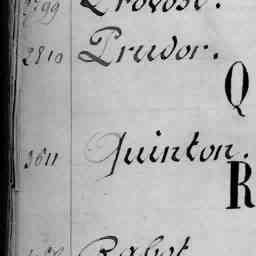 2799 Provost.
2810 Prudor.
Q
2811 Quinton.
R
Rabot